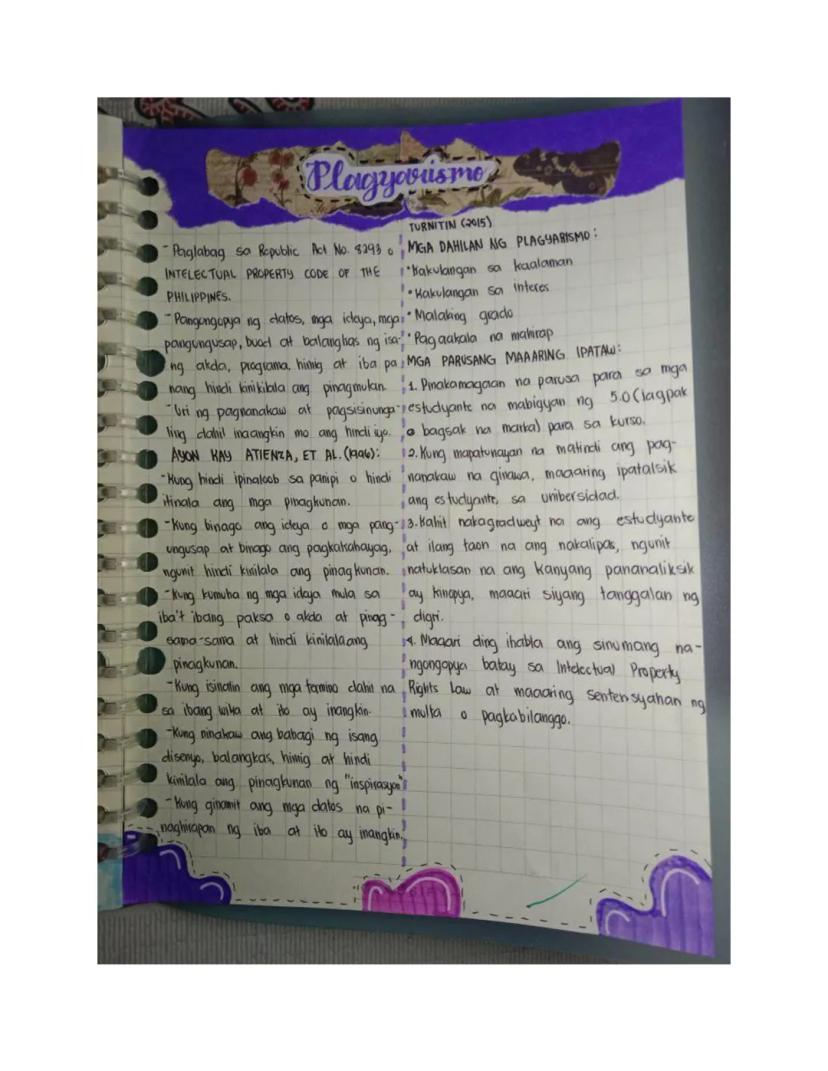 Plagyarismo
-Paglabag sa Republic Act No. 8293 o
INTELECTUAL PROPERTY CODE OF THE
PHILIPPINES.
-Pangongopya ng datos, mga ideya, mga
pangungusap, buod at balangkas ng isa-
ng akda, programa, himig at iba pa
nang hindi kinikilala ang pinagmulan.
-Uri ng pagnanakaw at pagsisinunga-
ling dahil inaangkin mo ang hindi iyo.
AYON KAY ATIENZA, ET AL. (1996):
-Kung hindi ipinaloob sa panipi o hindi
itinala ang mga pinagkunan.
-Kung binago ang ideya o mga pang-
ungusap at binago ang pagkakahayag,
ngunit hindi kinilala ang pinagkunan.
-Kung kumuha ng mga ideya mula sa
iba't ibang paksa o akda at pinag-
sama-sama at hindi kinilala ang
pinagkunan.
-Kung isinalin ang mga termino dahil na
sa ibang wika at ito ay inangkin.
-Kung ninakaw ang bahagi ng isang
disenyo, balangkas, himig at hindi
kinilala ang pinagkunan ng "inspirasyon"
-Kung ginamit ang mga datos na pi-
naghirapan ng iba at ito ay inangkin.
TURNITIN (2015)
MGA DAHILAN NG PLAGYARISMO:
•Kakulangan sa kaalaman
•Kakulangan sa interes
•Malaking grado
•Pag aakala na mahirap
MGA PARUSANG MAAARING IPATAW:
1. Pinakamagaan na parusa para sa mga
estudyante na mabigyan ng 5.0 (lagpak
o bagsak na marka) para sa kurso.
2. Kung mapatunayan na matindi ang pag-
nanakaw na ginawa, maaaring ipatalsik
ang estudyante, sa unibersidad.
3. Kahit nakagradweyt na ang estudyante
at ilang taon na ang nakalipas, ngunit
natuklasan na ang kanyang pananaliksik
ay kinopya, maaari siyang tanggalan ng
digri.
4. Maaari ding ihabla ang sinumang na-
ngongopya batay sa Intelectual Property
Rights Law at maaaring sentensyahan ng
multa o pagkabilanggo.